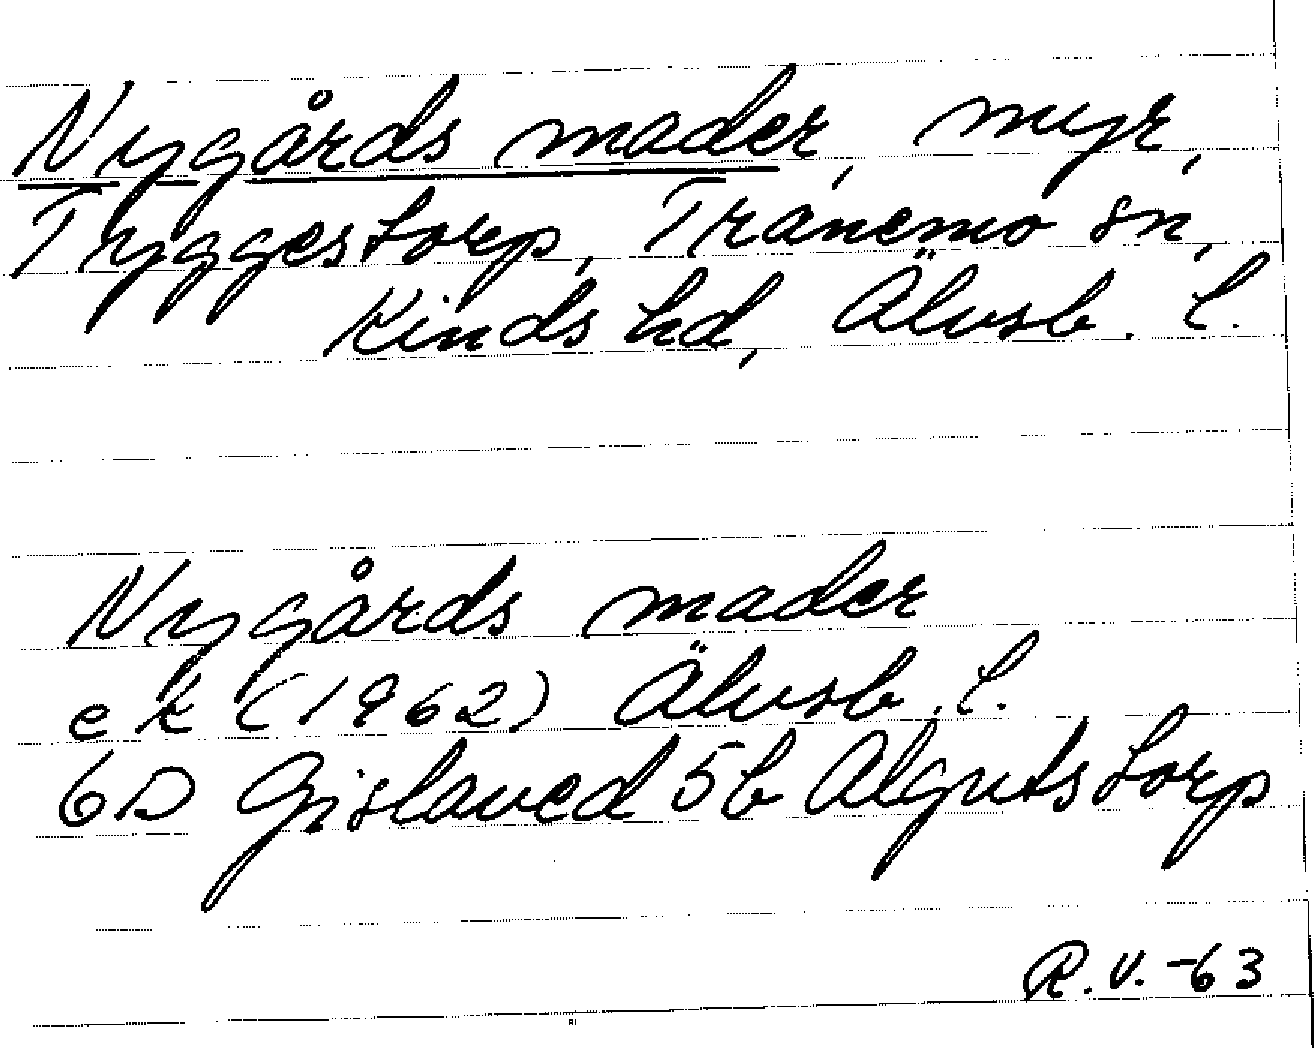 Nygårds mader, myr,
Tryggestorp, Tranemo sn,
Kinds hd, Älvsb. l.
Nygårds mader
ek (1962) Älvsb. l.
6D Gislaved 5b Algutstorp
R.V. -63